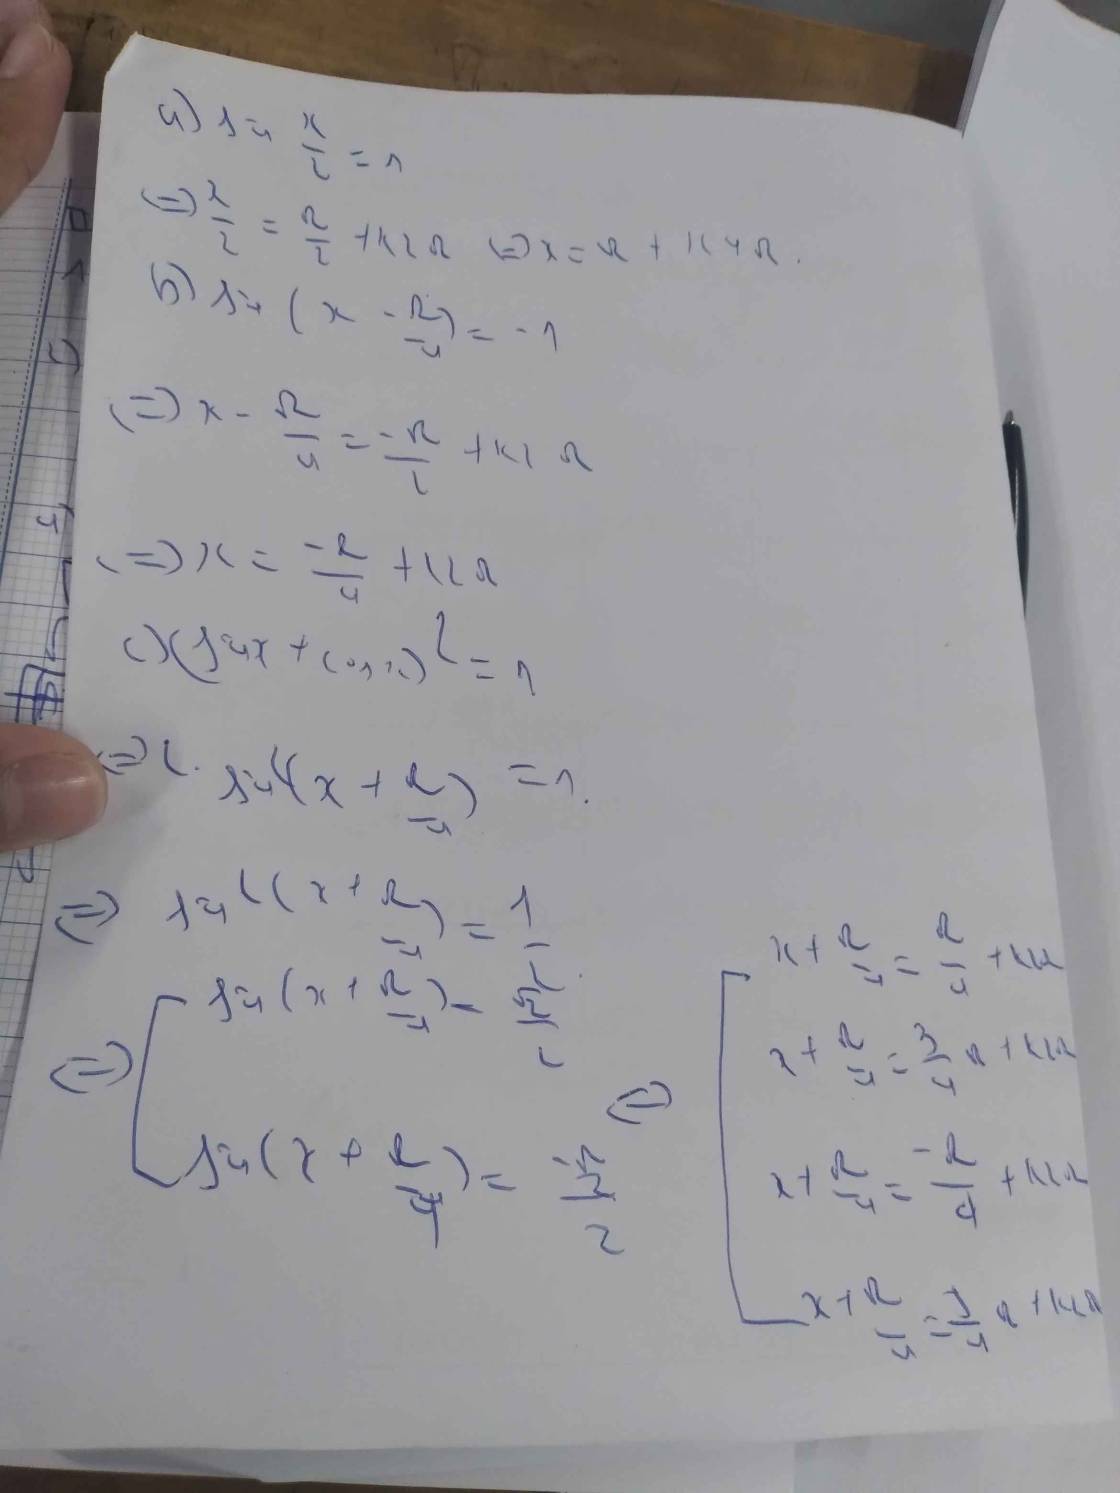 a) sin x/2 = 1
(=) x/2 = π/2 + k2π (=) x = π + k4π.
b) sin (x - π/4) = -1
(=) x - π/4 = -π/2 + k2π
(=) x = -π/4 + k2π
c) (sinx + cosx)² = 1
(=) 2. sin²(x + π/4) = 1.
(=) sin²(x + π/4) = 1/2.
(=) [ sin (x + π/4) = √2/2
sin (x + π/4) = -√2/2
(=) [ x + π/4 = π/4 + k2π
x + π/4 = 3/4 π + k2π
x + π/4 = -π/4 + k2π
x + π/4 = 5/4 π + k2π